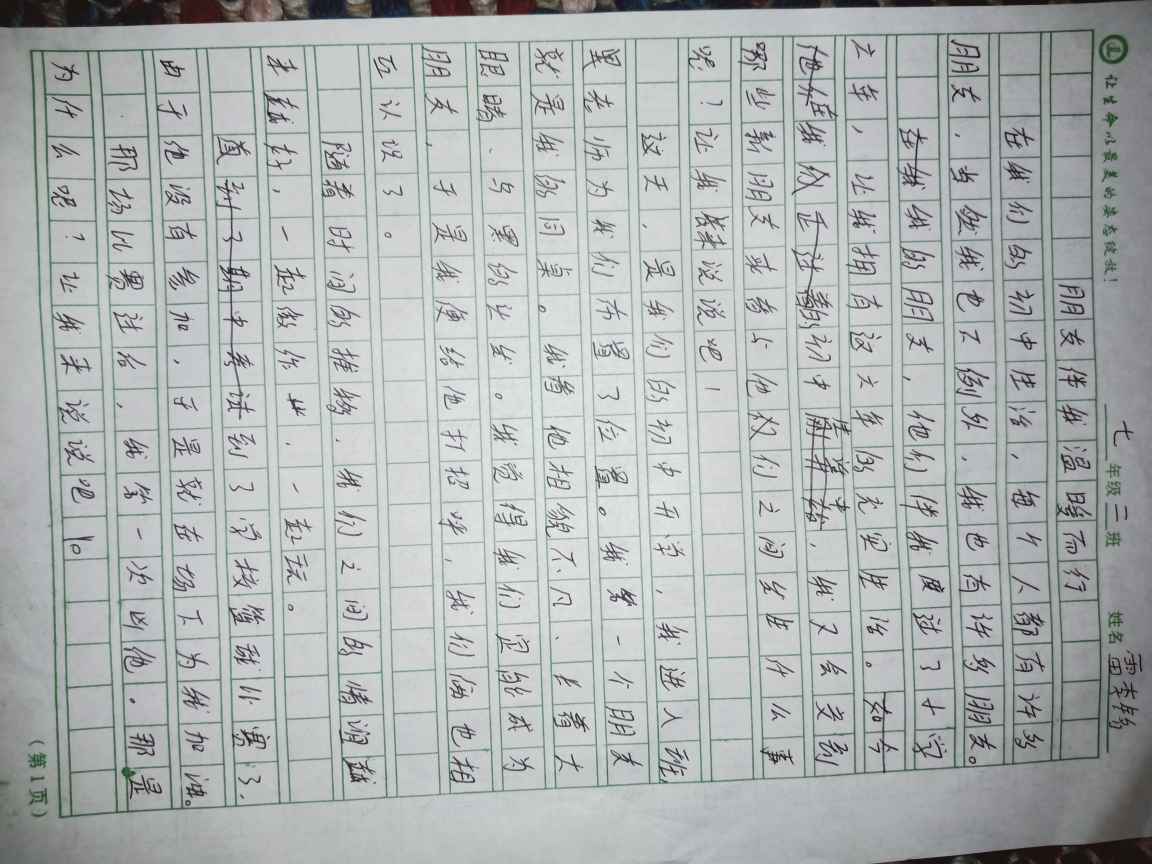 让生命以最美的姿态绽放!
七年级二班 姓名雷李铭
朋友伴我温暖而行
在我们的初中生活，每个人都有许多
朋友，当然我也不例外，我也有许多朋友。
在我的朋友，他们伴我度过了十字
之年，让我拥有这文年的充实生活。
我成初中，我又会交到
哪些新朋友或者与他
们之间发生什么事
呢？让我来说说吧！
这天，是我们的初中开学，我进入班
里老师为我们布置了位置。我第一个朋友
就是我的同桌。我看他相貌不凡、长着大
眼睛、乌黑的头发。我觉得我们定能成为
朋友，于是我便给他打招呼，我们俩也相
互认识了。
随着时间的推移，我们之间的情谊越
来越好，一起做作业，一起玩。
到了学校篮球比赛了，
由于他没有参加，于是就在场下为我加油。
那场比赛过后，我第一次凶他。那是
为什么呢？让我来说说吧！
(第1页)